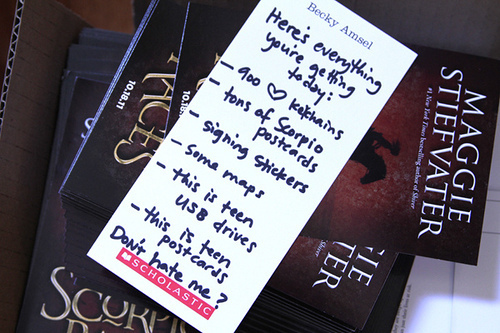 Becky Amsel
Here's everything
you're getting
today:
- 900 ♡ keychains
- tons of Scorpio
postcards
- signing stickers
- some maps
- this is teen
USB drives
- this is teen
postcards
Don't hate me?
SCHOLASTIC
MAGGIE
STIEFVATER
#1 New York Times bestselling author of Shiver
10.18.11
RACES
10.18.11
Shiver
IE
TER
SCORPIO